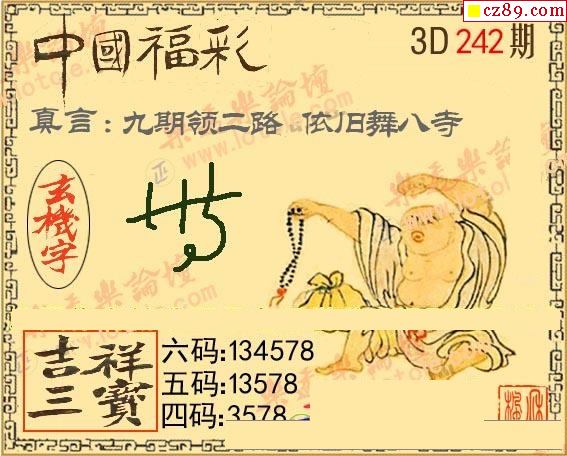 cz89.com
中國福彩
3D 242 期
真言：九期领二路 依旧舞八寺
玄機字
吉祥三寶
六码:134578
五码:13578
四码:3578